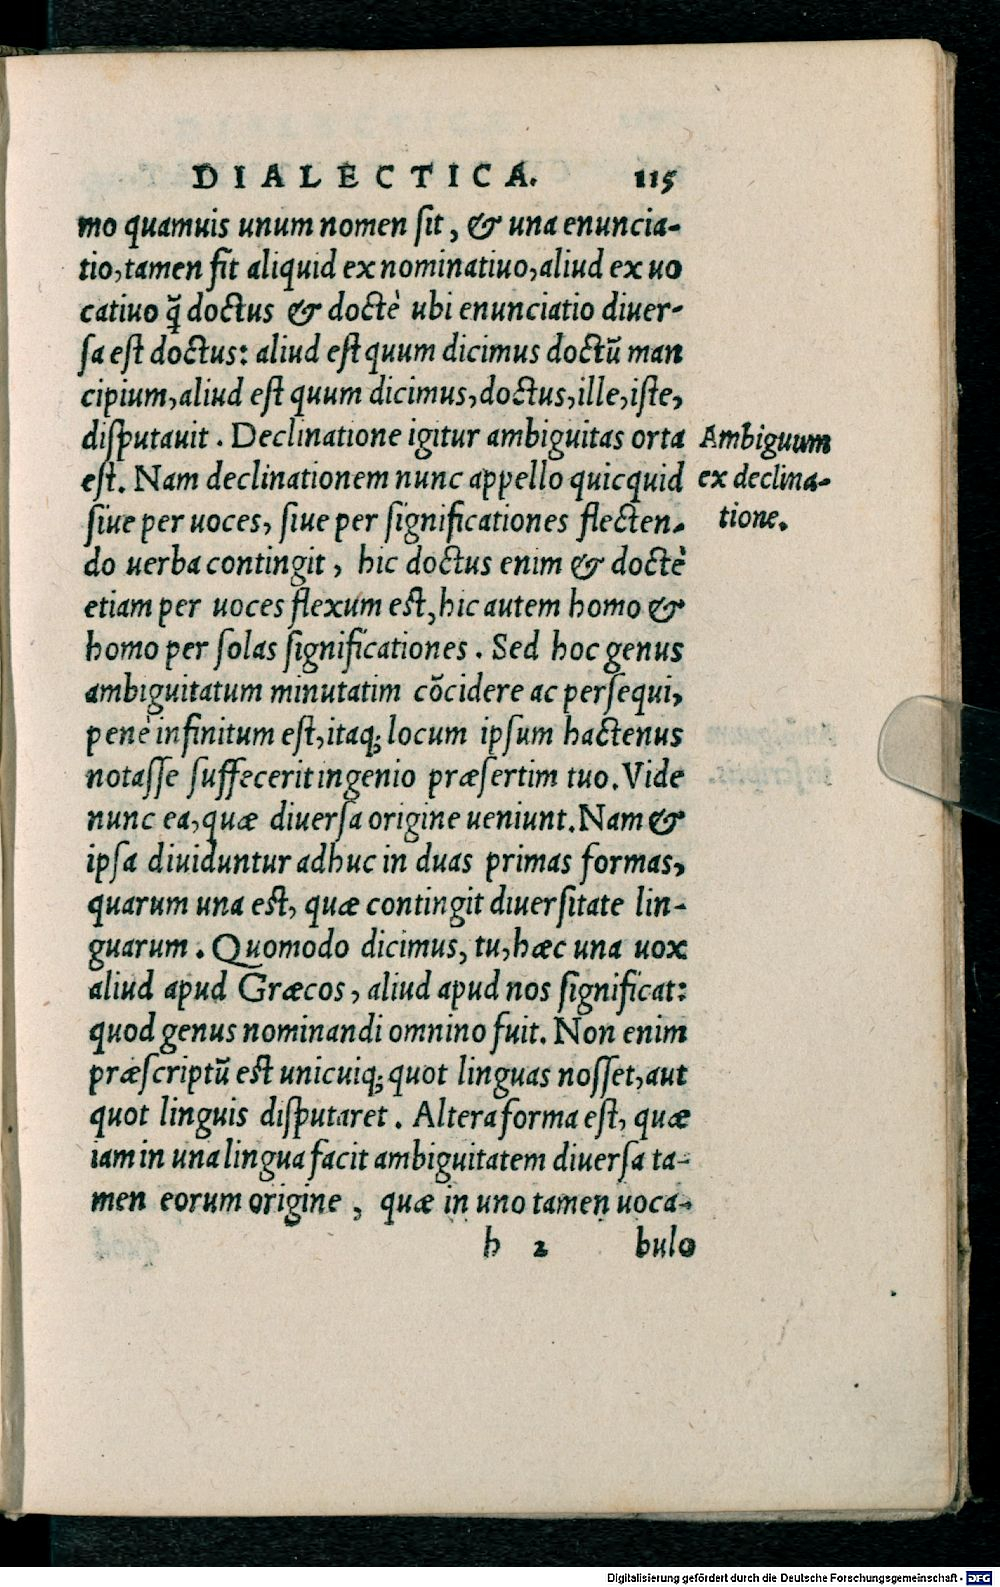 DIALECTICA. 115
mo quamuis unum nomen sit, & una enuncia-
tio, tamen fit aliquid ex nominatiuo, aliud ex uo
catiuo q̃ doctus & doctè ubi enunciatio diuer-
sa est doctus: aliud est quum dicimus doctũ man
cipium, aliud est quum dicimus, doctus, ille, iste,
disputauit. Declinatione igitur ambiguitas orta
est. Nam declinationem nunc appello quicquid
siue per uoces, siue per significationes flecten-
do uerba contingit, hic doctus enim & doctè
etiam per uoces flexum est, hic autem homo &
homo per solas significationes. Sed hoc genus
ambiguitatum minutatim cõcidere ac persequi,
penè infinitum est, itaq; locum ipsum hactenus
notasse suffecerit ingenio præsertim tuo. Vide
nunc ea, quæ diuersa origine ueniunt. Nam &
ipsa diuiduntur adhuc in duas primas formas,
quarum una est, quæ contingit diuersitate lin-
guarum. Quomodo dicimus, tu, hæc una uox
aliud apud Græcos, aliud apud nos significat:
quod genus nominandi omnino fuit. Non enim
præscriptũ est unicuiq; quot linguas nosset, aut
quot linguis disputaret. Altera forma est, quæ
iam in una lingua facit ambiguitatem diuersa ta-
men eorum origine, quæ in uno tamen uoca-
h 2 bulo
Ambiguum
ex declina-
tione.
Digitalisierung gefördert durch die Deutsche Forschungsgemeinschaft - DFG